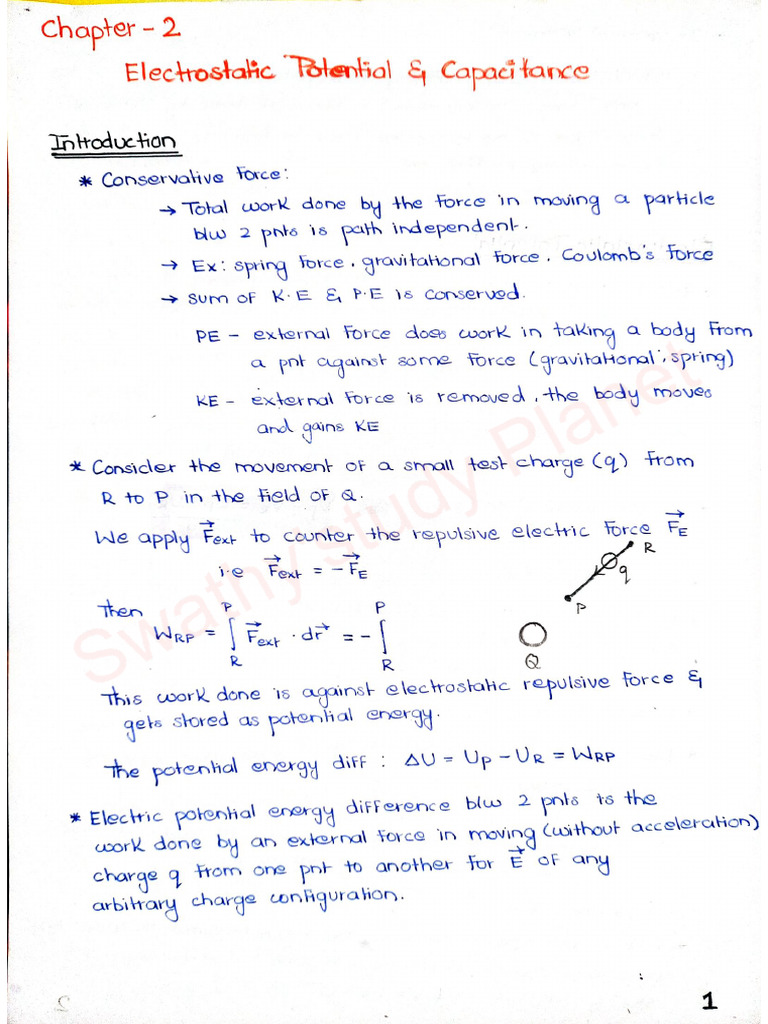 Chapter - 2
Electrostatic Potential & Capacitance
Introduction
* Conservative Force:
→ Total work done by the Force in moving a particle
b/w 2 pnts is path independent.
→ Ex: spring Force, gravitational Force, Coulomb's Force
→ sum of K.E & P.E is conserved.
PE - external Force does work in taking a body from
a pnt against some Force (gravitational, spring)
KE - external Force is removed, the body moves
and gains KE
* Consider the movement of a small test charge (q) from
R to P in the field of Q.
We apply F⃗ext to counter the repulsive electric Force F⃗E
i.e F⃗ext = -F⃗E
R
q
P
Q
Then
WRP = ∫ᴾR F⃗ext · dr⃗ = - ∫ᴾR
This work done is against electrostatic repulsive Force &
gets stored as potential energy.
The potential energy diff : ΔU = UP - UR = WRP
* Electric potential energy difference b/w 2 pnts is the
work done by an external force in moving (without acceleration)
charge q from one pnt to another for E⃗ of any
arbitrary charge configuration.
1
Swathy Study Planet